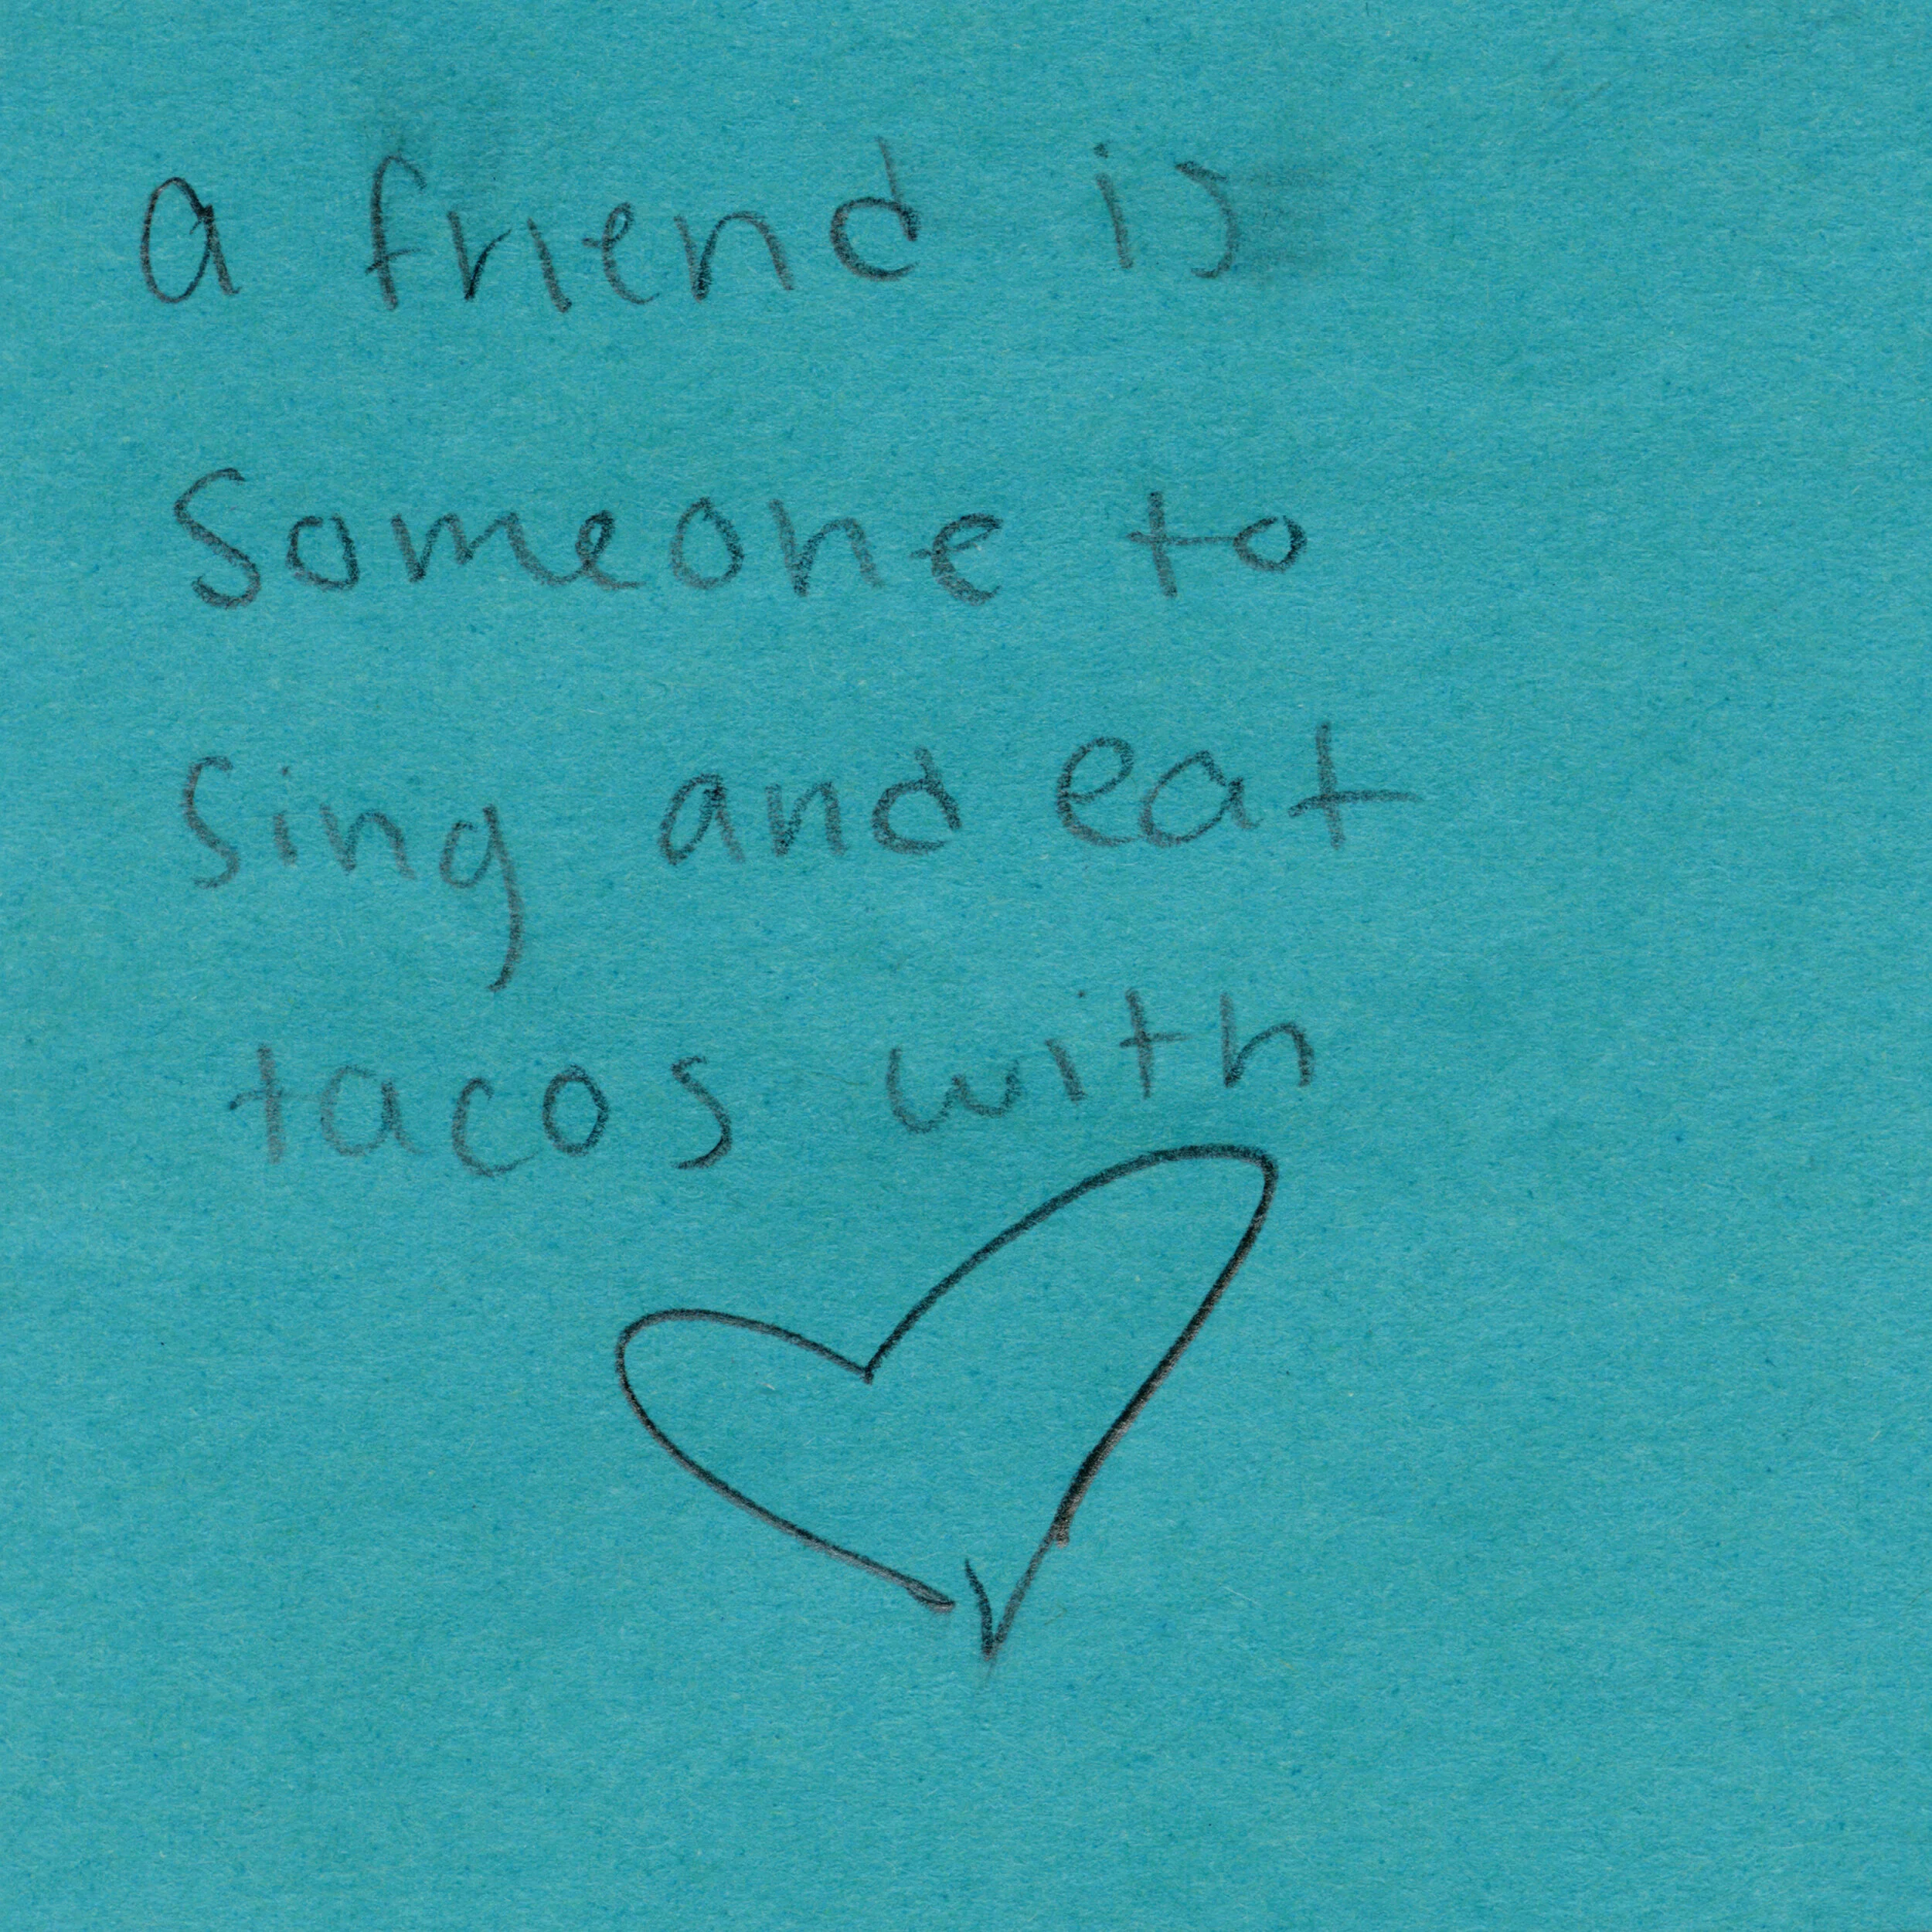 a friend is
Someone to
Sing and eat
tacos with